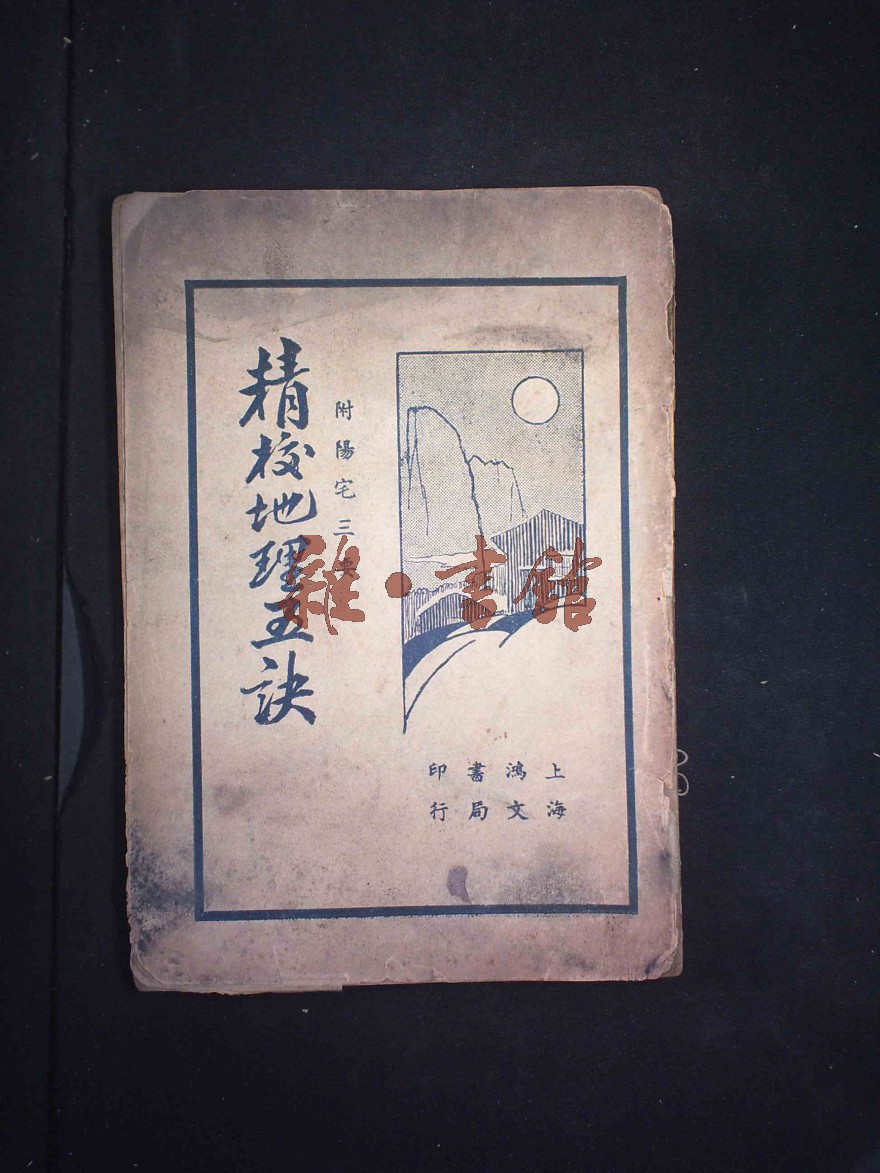 精校地理五訣
附陽宅三要
上海
鴻文
書局
印行
雜·書館